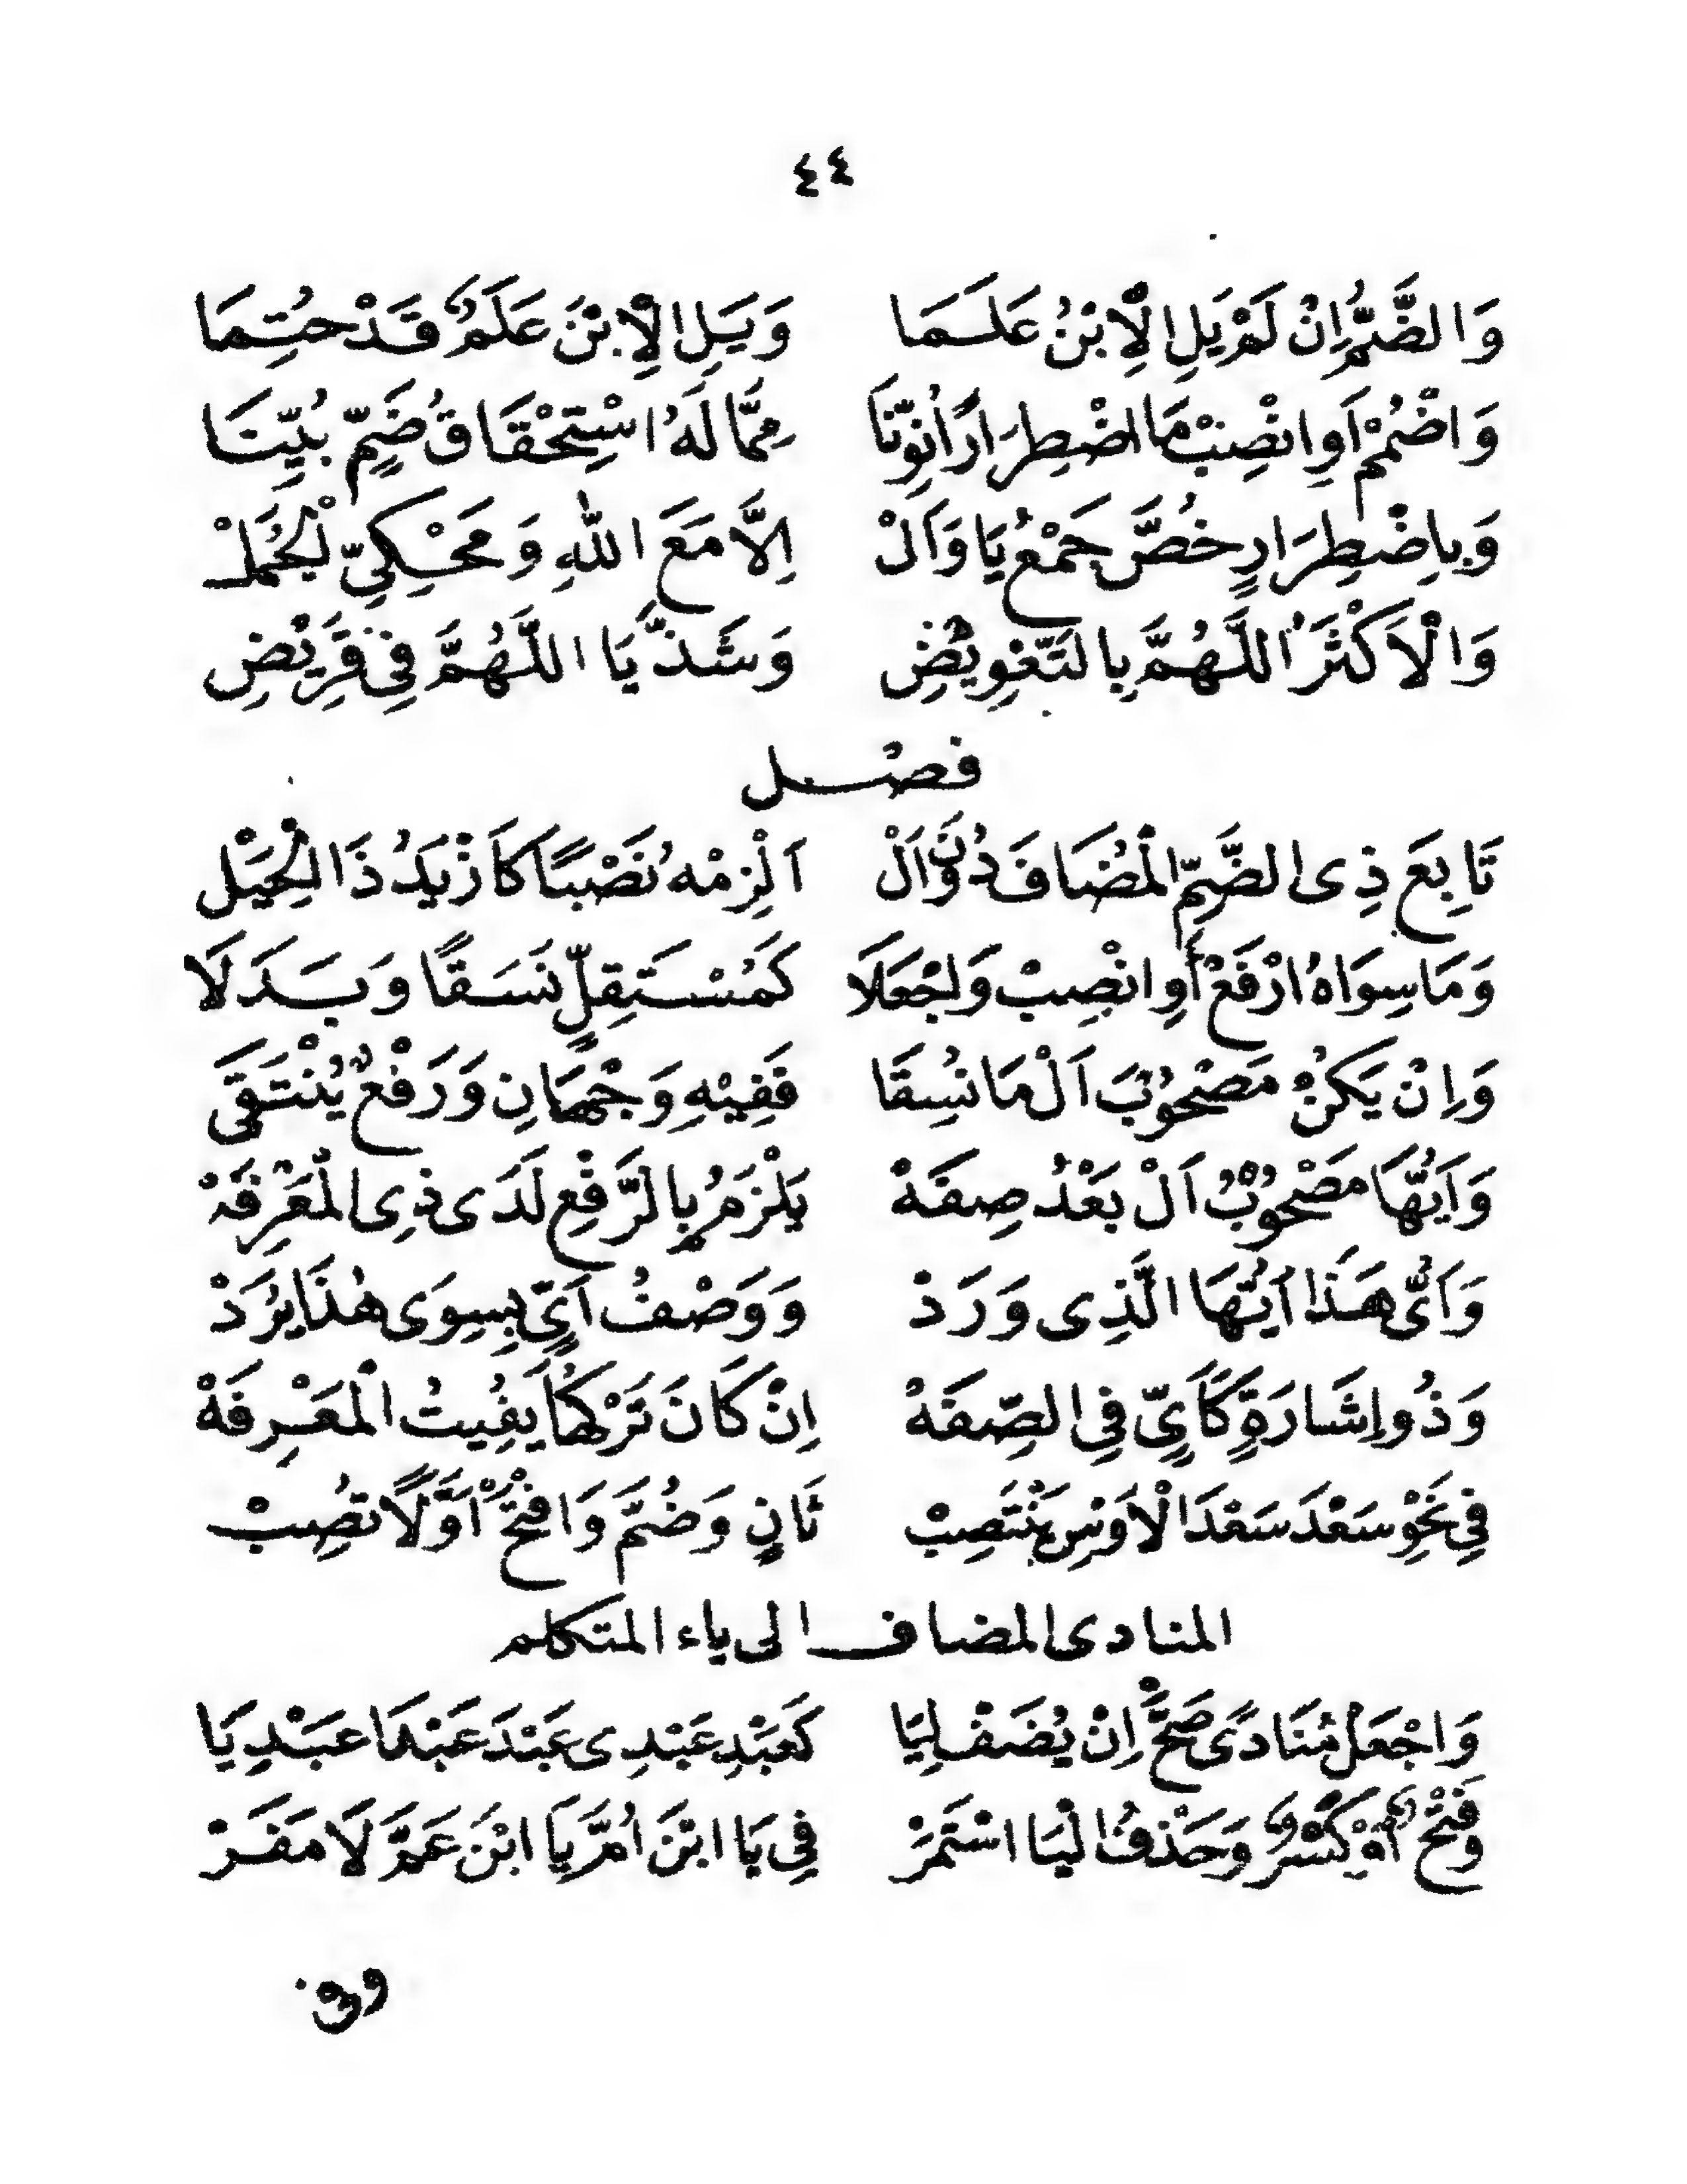 ٤٤
وَالضَّمُّ اِنْ لَمْ يَلِ الْاِبْنُ عَلَمَا وَيَلِ الْاِبْنَ عَلَمٌ قَدْ حُتِمَا
وَاضْمُمْ اَوِ انْصِبْ مَا اضْطِرَارًا نُوِّنَا مِمَّا لَهُ اسْتِحْقَاقُ ضَمٍّ بُيِّنَا
وَبِاضْطِرَارٍ خُصَّ جَمْعُ يَا وَاَلْ اِلَّا مَعَ اللهِ وَمَحْكِيِّ الْجُمَلْ
وَالْاَكْثَرُ اللَّهُمَّ بِالتَّعْوِيْضِ وَشَذَّ يَا اللَّهُمَّ فِي قَرِيْضِ
فصل
تَابِعَ ذِى الضَّمِّ الْمُضَافَ دُوْنَ اَلْ اَلْزِمْهُ نَصْبًا كَاَزَيْدُ ذَا الْحِيَلْ
وَمَا سِوَاهُ ارْفَعْ اَوِ انْصِبْ وَاجْعَلَا كَمُسْتَقِلٍّ نَسَقًا وَبَدَلَا
وَاِنْ يَكُنْ مَصْحُوْبَ اَلْ مَا نُسِقَا فَفِيْهِ وَجْهَانِ وَرَفْعٌ يُنْتَقَى
وَاَيُّهَا مَصْحُوْبُ اَلْ بَعْدُ صِفَهْ يَلْزَمُ بِالرَّفْعِ لَدَى ذِى الْمَعْرِفَهْ
وَاَىُّ هَذَا اَيُّهَا الَّذِى وَرَدْ وَوَصْفُ اَيٍّ بِسِوَى هٰذَا يُرَدْ
وَذُو اِشَارَةٍ كَاَيٍّ فِي الصِّفَهْ اِنْ كَانَ تَرْكُهَا يُفِيتُ الْمَعْرِفَهْ
فِي نَحْوِ سَعْدَ سَعْدَ الْاَوْسِ يَنْتَصِبْ ثَانٍ وَضُمَّ وَافْتَحْ اَوَّلًا تُصِبْ
المنادى المضاف الى ياء المتكلم
وَاجْعَلْ مُنَادًى صَحَّ اِنْ يُضَفْ لِيَا كَعَبْدِ عَبْدِى عَبْدَ عَبْدَا عَبْدِيَا
وَفَتْحٌ اَوْ كَسْرٌ وَحَذْفُ الْيَا اسْتَمَرْ فِي يَا ابْنَ اُمَّ يَا ابْنَ عَمَّ لَا مَفَرْ
وفى